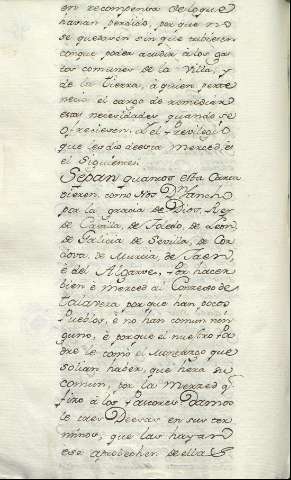 en recompensa de lo que
havian perdido, por que no
se quedasen sin que tubiesen
con que poder acudir a los gas
tos comunes de la Villa, y
de la tierra, á quien perte
necia el cargo de remediar
estas necesidades quando se
ofreciesen, el Previlegio
que les dio de esta merced, es
el siguiente:
Sepan quantos esta Carta
vieren, como Nos Dn Sancho
por la gracia de Dios, Rey
de Castilla, de Toledo, de Leon,
de Galicia de Sevilla, de Cor
dova de Murcia de Jaen,
e del Algarve, Por hacer
bien e merced al Conzejo de
por que han pocos
Pueblos, e no han comun nin
guno, e porque el nuestro Pa
dre le tomó el que
solian haber, que hera su
comun, por la merzed q
fizo á los Damos
le tres Deesas en sus ter
minos, que las hayan
e se aprobechen de ellas